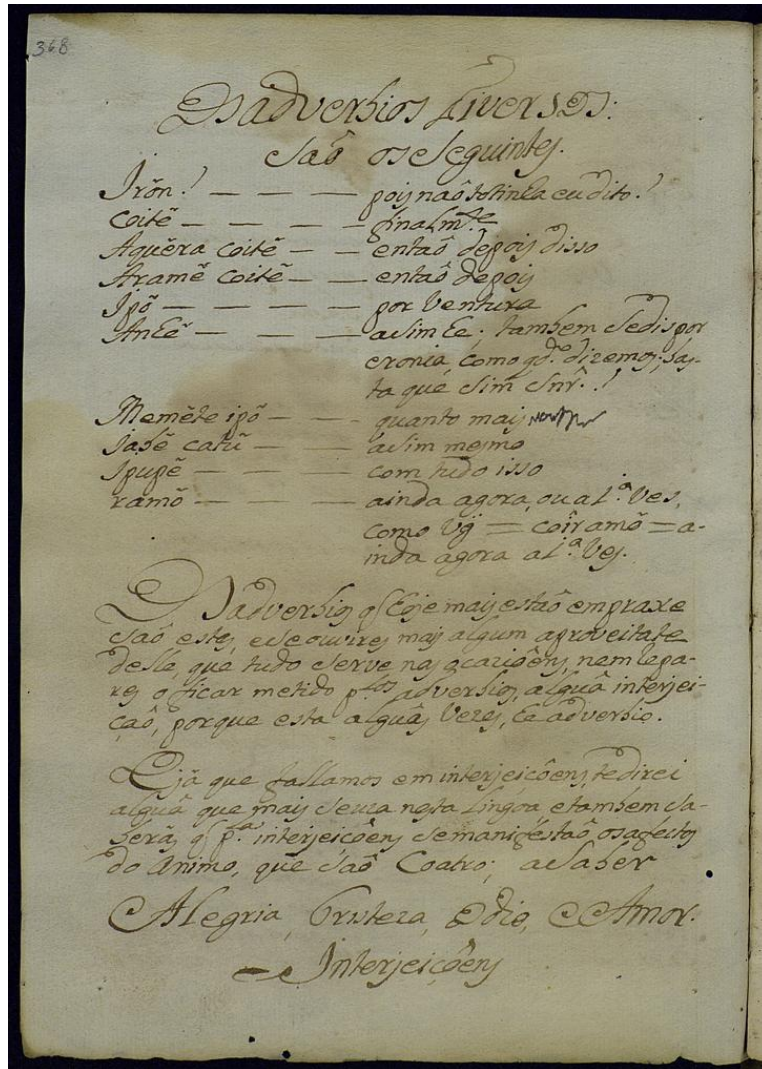 368
Os adverbios Diversos:
Saõ os Seguintes.
Irõn! — — — pois naõ to tinha eu dito!
Coitẽ — — — — finalm.te
Aquẽra coitẽ — — entaõ depois disso
Aramẽ coitẽ — — entaõ depois
Ipõ — — — — por Ventura
Anhẽ — — — asim he; tambem Se dis por
cronia, como qd.º dizemos; bas-
ta que Sim Snr̃.!
Memẽte ipõ — — quanto mais
Jabẽ catũ — — — asim mesmo
Ipupẽ — — — com tudo isso
ramõ — — — ainda agora, ou a 1.ª Ves,
como Vg̃ = coir̃amõ = a-
inda agora a 1.ª Ves.
Os adverbios q̃ hoje mais estaõ em praxe
Saõ estes, e Se ouvires mais algum aproveitate
delle, que tudo Serve nas ocazioẽns, nem repa-
res o ficar metido p.los adverbios, alguã interjei-
çaõ, porque esta alguãs Vezes, he adverbio.
E jà que fallamos em interjeiçoẽns, te direi
alguã que mais Se uza nesta Lingoa e tambem Sa-
berás q̃ p.las interjeiçoẽns Se manifestaõ os afectos
do Animo, que Saõ Coatro; a Saber
Alegria, Tristeza, Odio, e Amor.
Interjeiçoẽns